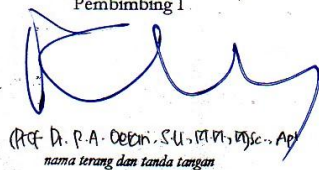 Pembimbing I
(Prof. Dr. P.A. Oetari, S.U., M.M., M.Sc., Apt
nama terang dan tanda tangan